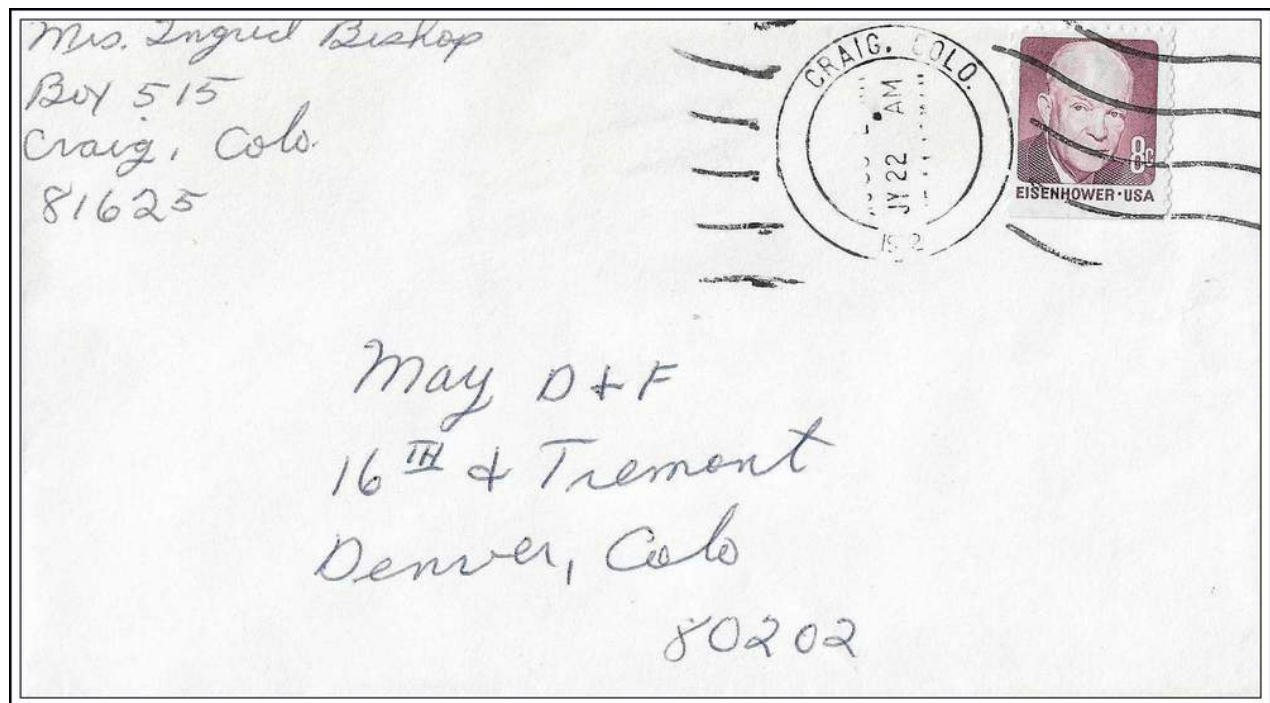 Mrs. Ingrid Bishop
Box 515
Craig, Colo.
81625
CRAIG, COLO.
AM
JY 22
8c
EISENHOWER·USA
May D & F
16TH & Tremont
Denver, Colo
80202